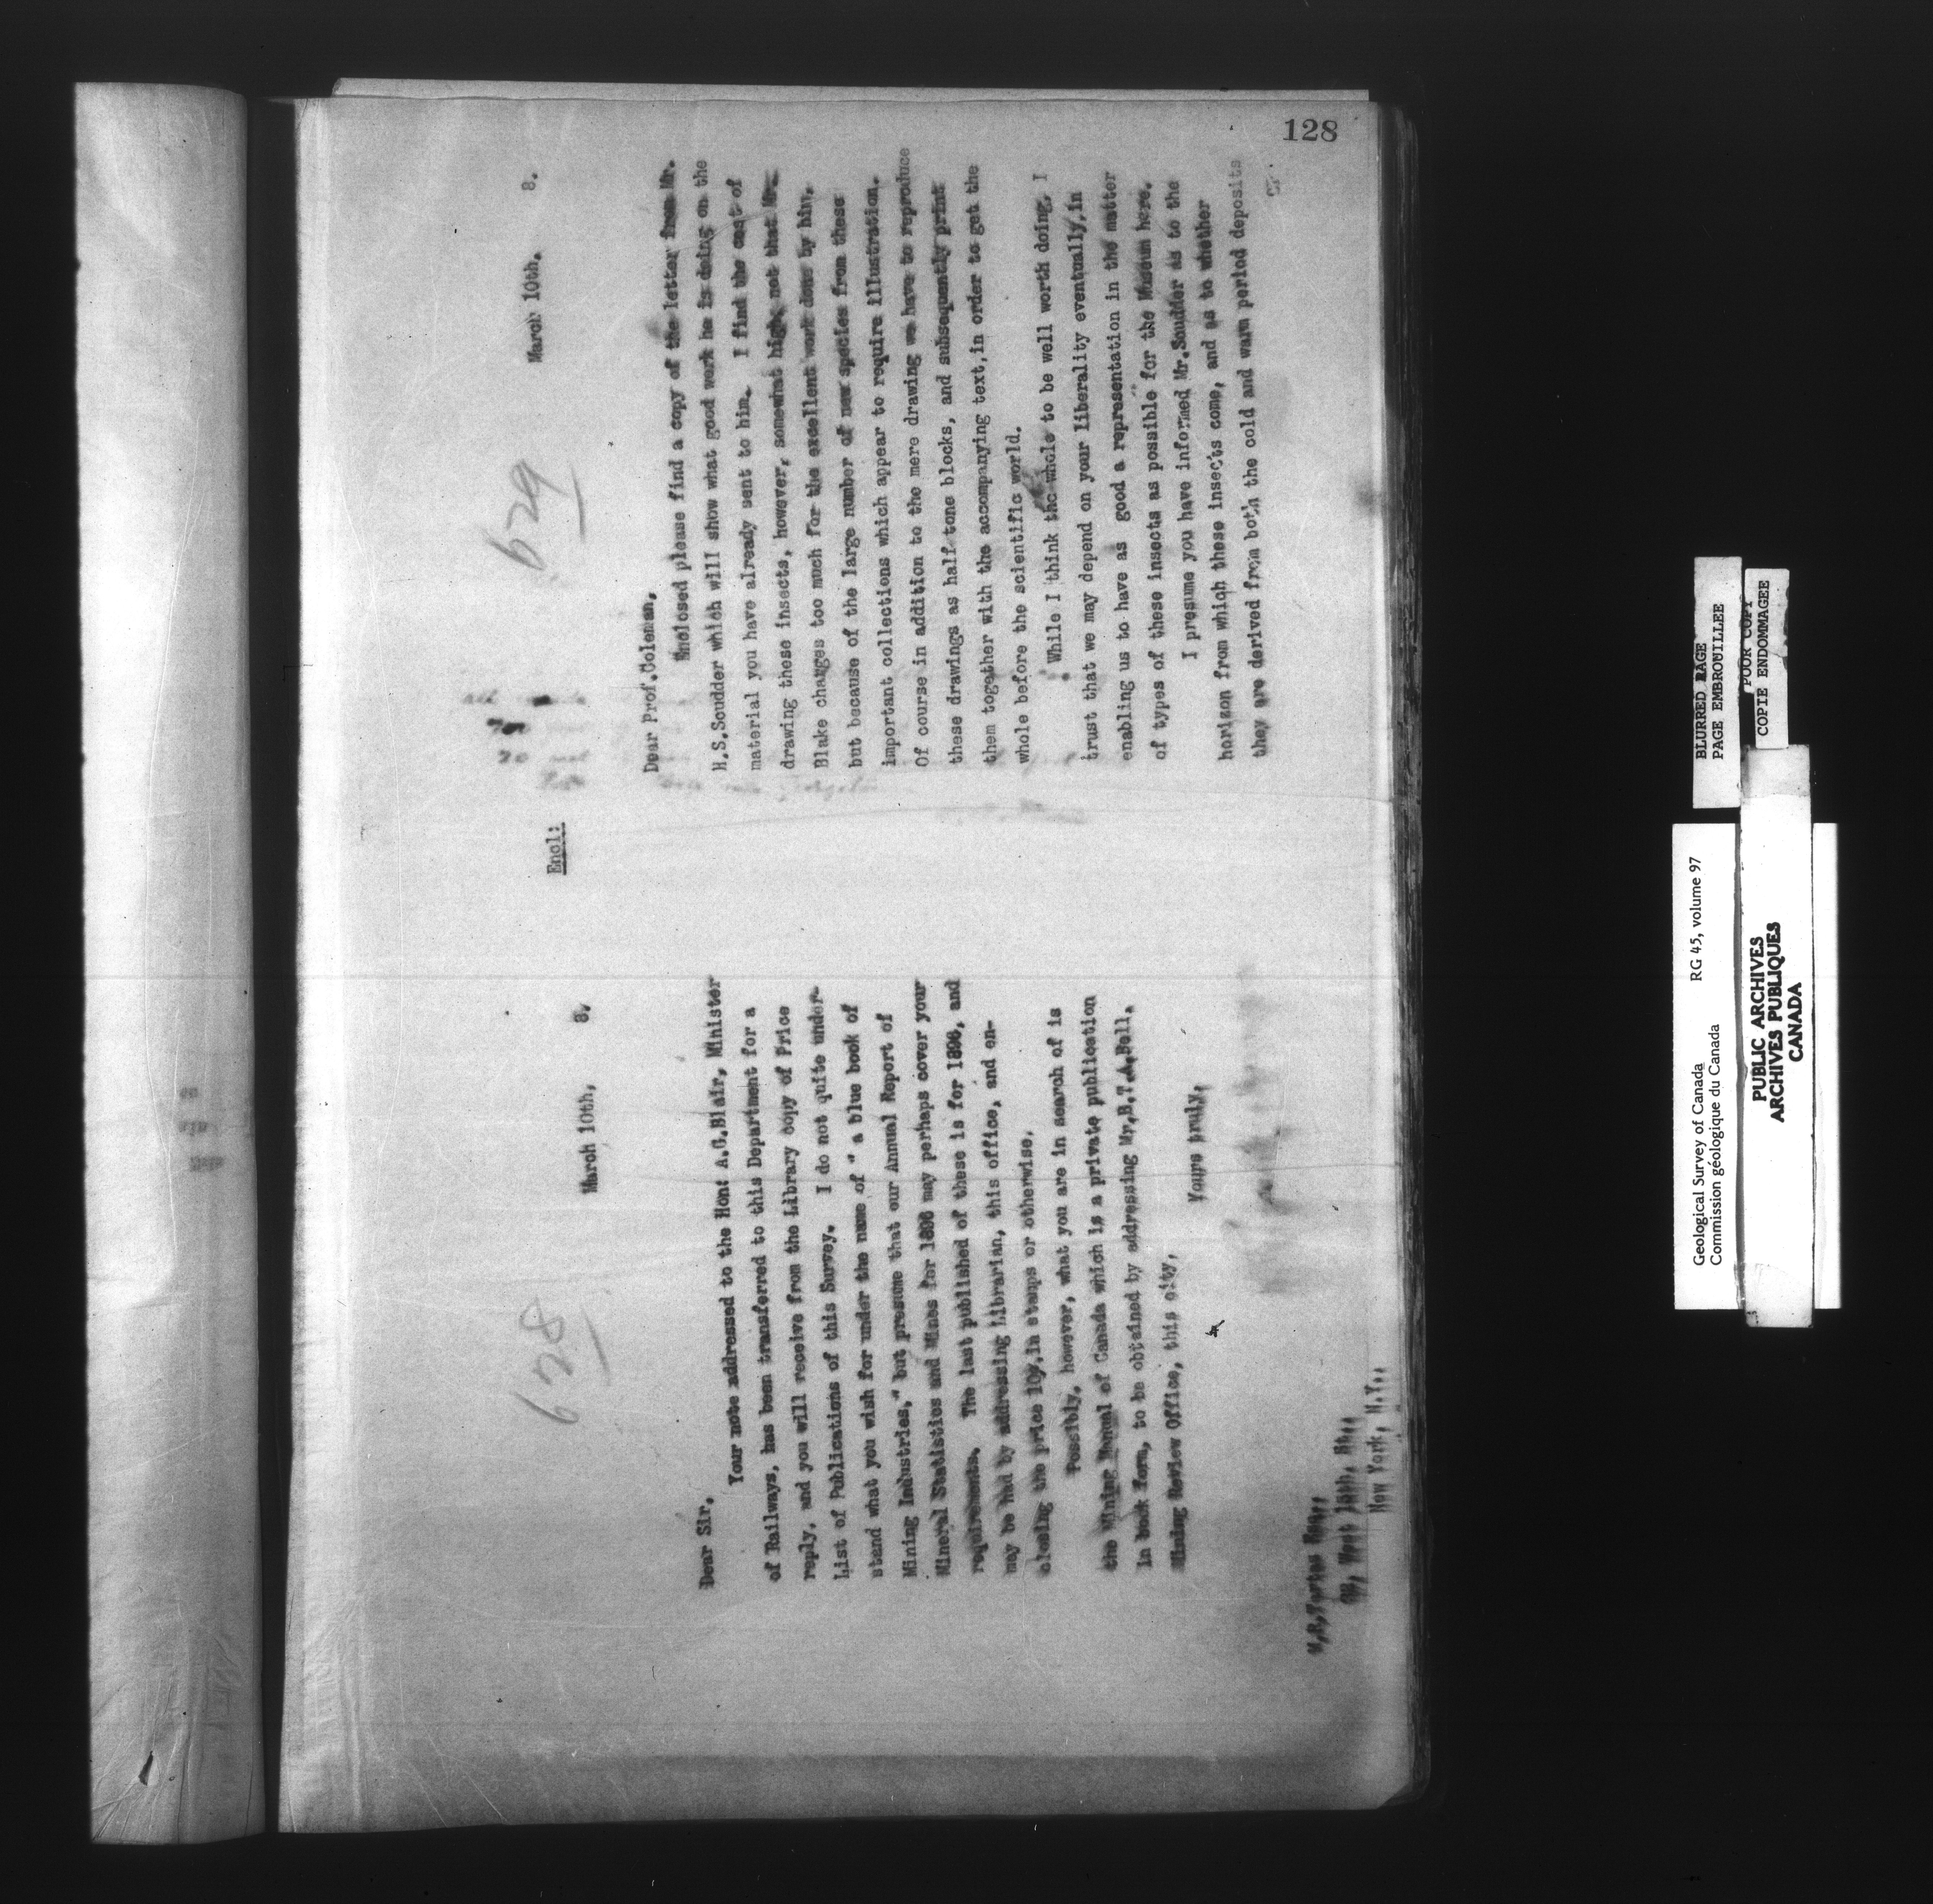 128
628
March 10th, 8.
Dear Sir,
Your note addressed to the Hon: A.G.Blair, Minister
of Railways, has been transferred to this Department for a
reply, and you will receive from the Library copy of Price
List of Publications of this Survey. I do not quite under-
stand what you wish for under the name of " a blue book of
Mining Industries," but presume that our Annual Report of
Mineral Statistics and Mines for 1896 may perhaps cover your
requirements. The last published of these is for 1896, and
may be had by addressing Librarian, this office, and en-
closing the price 10¢,in stamps or otherwise.
Possibly, however, what you are in search of is
the Mining Manual of Canada which is a private publication
in book form, to be obtained by addressing Mr.B.T.A.Bell,
Mining Review Office, this city,
Yours truly,
New York, N.Y.,
629
March 10th. 8.
Encl:
Dear Prof.Coleman,
Enclosed please find a copy of the letter from Mr.
H.S.Scudder which will show what good work he is doing on the
material you have already sent to him. I find the cost of
drawing these insects, however, somewhat high, not that Mr.
Blake charges too much for the excellent work done by him,
but because of the large number of new species from these
important collections which appear to require illustration.
Of course in addition to the mere drawing we have to reproduce
these drawings as half tone blocks, and subsequently print
them together with the accompanying text,in order to get the
whole before the scientific world.
While I think the whole to be well worth doing, I
trust that we may depend on your liberality eventually,in
enabling us to have as good a representation in the matter
of types of these insects as possible for the Museum here.
I presume you have informed Mr.Scudder as to the
horizon from which these insects come, and as to whether
they are derived from both the cold and warm period deposits
BLURRED PAGE
PAGE EMBROUILLEE
POOR COPY
COPIE ENDOMMAGEE
Geological Survey of Canada RG 45, volume 97
Commission géologique du Canada
PUBLIC ARCHIVES
ARCHIVES PUBLIQUES
CANADA